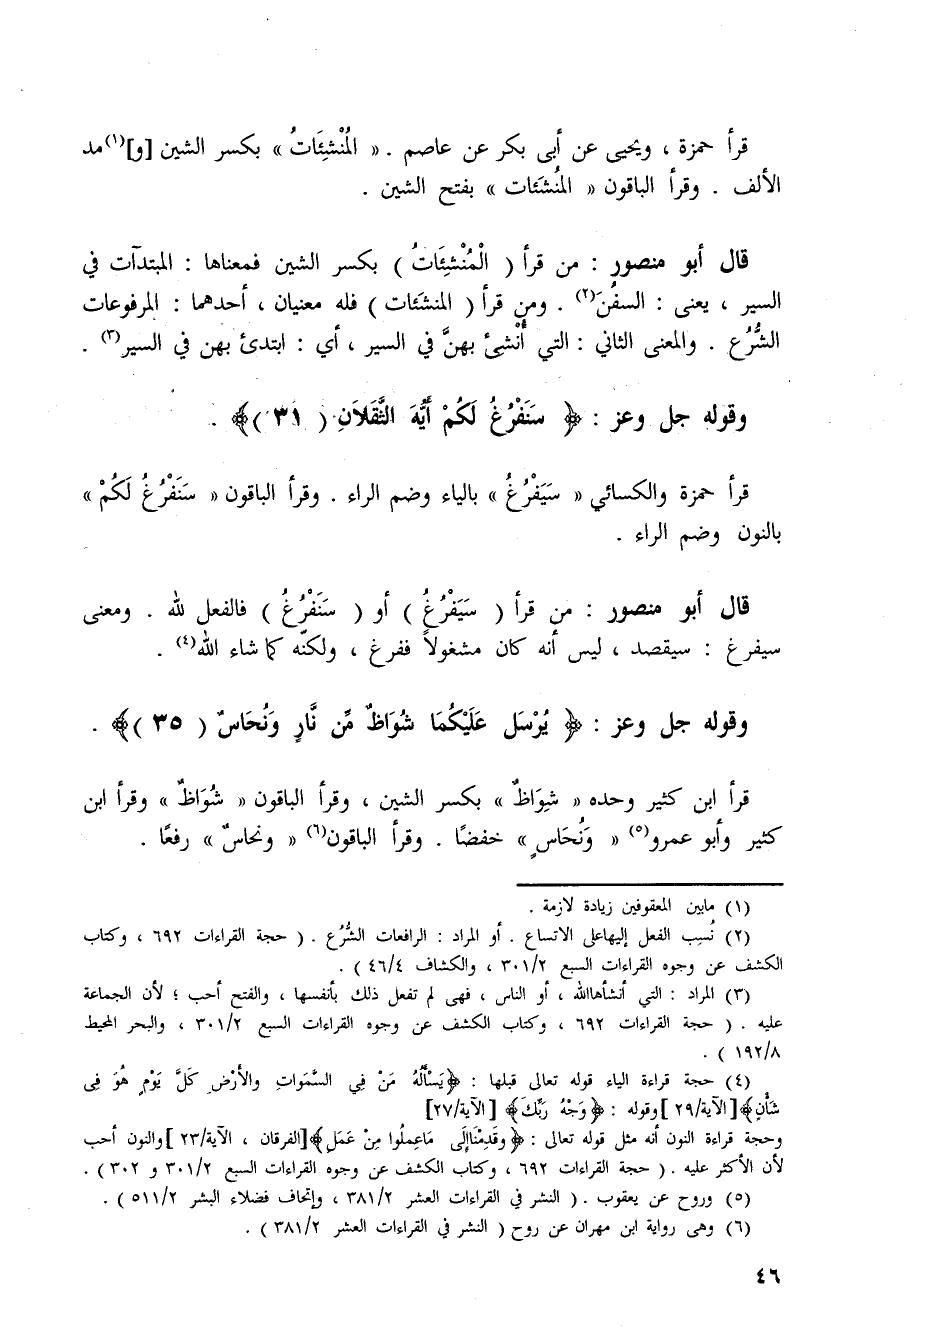 قرأ حمزة ، ويحيى عن أبى بكر عن عاصم . « الْمُنْشِئَاتُ » بكسر الشين [و](١)مد
الألف . وقرأ الباقون « المُنشَئات » بفتح الشين .
قال أبو منصور : من قرأ ( الْمُنْشِئَاتُ ) بكسر الشين فمعناها : المبتدآت في
السير ، يعنى : السفُنَ(٢) . ومن قرأ ( المنشَئات ) فله معنيان ، أحدهما : المرفوعات
الشُّرُع . والمعنى الثاني : التي أُنْشِئ بهنَّ في السير ، أي : ابتدئ بهن في السير(٣) .
وقوله جل وعز : ﴿ سَنَفْرُغُ لَكُمْ أَيُّهَ الثَّقَلاَنِ ( ٣١ )﴾ .
قرأ حمزة والكسائي « سَيَفْرُغُ » بالياء وضم الراء . وقرأ الباقون « سَنَفْرُغُ لَكُمْ »
بالنون وضم الراء .
قال أبو منصور : من قرأ ( سَيَفْرُغُ ) أو ( سَنَفْرُغُ ) فالفعل لله . ومعنى
سيفرغ : سيقصد ، ليس أنه كان مشغولاً ففرغ ، ولكنّه كما شاء الله(٤) .
وقوله جل وعز : ﴿ يُرْسَل عَلَيْكُمَا شُوَاظٌ مِّن نَّارٍ وَنُحَاسٌ ( ٣٥ )﴾ .
قرأ ابن كثير وحده « شِوَاظٌ » بكسر الشين ، وقرأ الباقون « شُوَاظٌ » وقرأ ابن
كثير وأبو عمرو(٥) « وَنُحَاسٍ » خفضًا . وقرأ الباقون(٦) « ونحاسٌ » رفعًا .
(١) مابين المعقوفين زيادة لازمة .
(٢) نُسِب الفعل إليهاعلى الاتساع . أو المراد : الرافعات الشُّرُع . ( حجة القراءات ٦٩٢ ، وكتاب
الكشف عن وجوه القراءات السبع ٣٠١/٢ ، والكشاف ٤٦/٤ ) .
(٣) المراد : التي أنشأهاالله ، أو الناس ، فهى لم تفعل ذلك بأنفسها ، والفتح أحب ؛ لأن الجماعة
عليه . ( حجة القراءات ٦٩٢ ، وكتاب الكشف عن وجوه القراءات السبع ٣٠١/٢ ، والبحر المحيط
١٩٢/٨ ) .
(٤) حجة قراءة الياء قوله تعالى قبلها : ﴿يَسأَلُهُ مَنْ فِي السَّمَواتِ والأرْضِ كَلَّ يَوْمٍ هُوَ فِى
شَأْنٍ﴾[الآية/٢٩ ]وقوله : ﴿وَجْهُ رَبِّكَ﴾ [الآية/٢٧]
وحجة قراءة النون أنه مثل قوله تعالى : ﴿وقَدِمْنَاإِلَى مَاعِملُوا مِنْ عَمَلٍ﴾[الفرقان ، الآية/٢٣ ]والنون أحب
لأن الأكثر عليه . ( حجة القراءات ٦٩٢ ، وكتاب الكشف عن وجوه القراءات السبع ٣٠١/٢ و ٣٠٢ ) .
(٥) وروح عن يعقوب . ( النشر في القراءات العشر ٣٨١/٢ ، وإتحاف فضلاء البشر ٥١١/٢ ) .
(٦) وهى رواية ابن مهران عن روح ( النشر في القراءات العشر ٣٨١/٢ ) .
٤٦